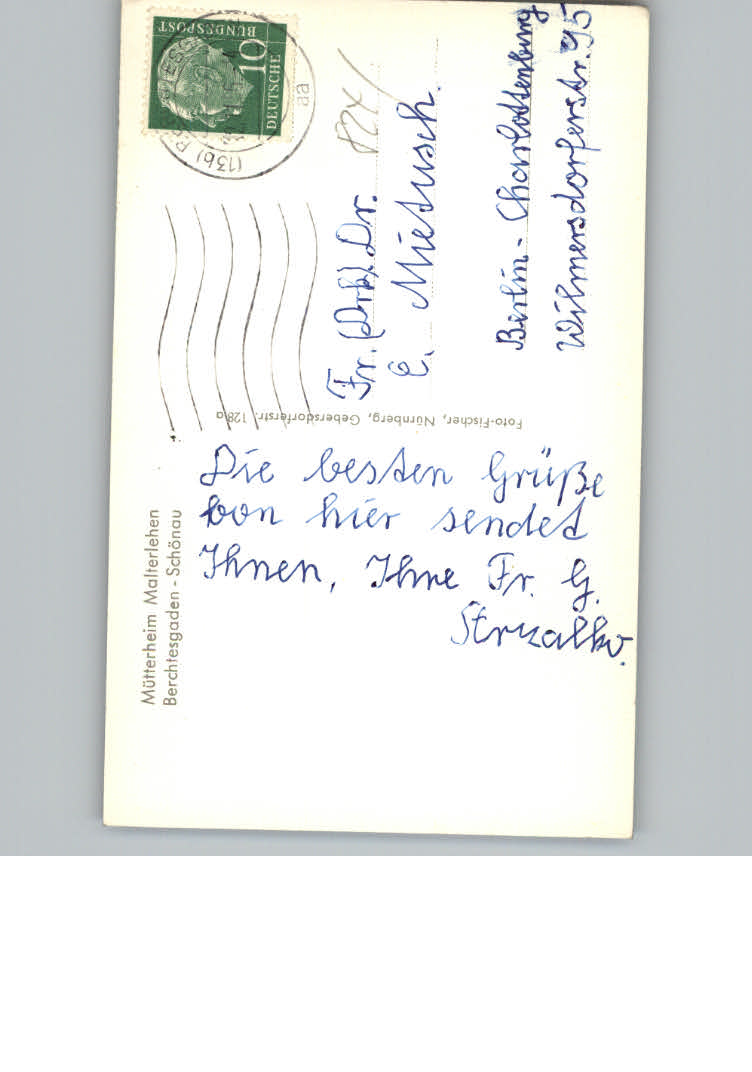 Mütterheim Malterlehen
Berchtesgaden - Schönau
Die besten Grüße
von hier sendet
Ihnen, Ihre Fr. G.
Strzalko.
Foto-Fischer, Nürnberg, Gebersdorferstr. 128a
DEUTSCHE
BUNDESPOST
10
(13b)
aa
824/
Fr. Dr.
C. Mietusch.
Berlin - Charlottenburg
Wilmersdorferstr. 95